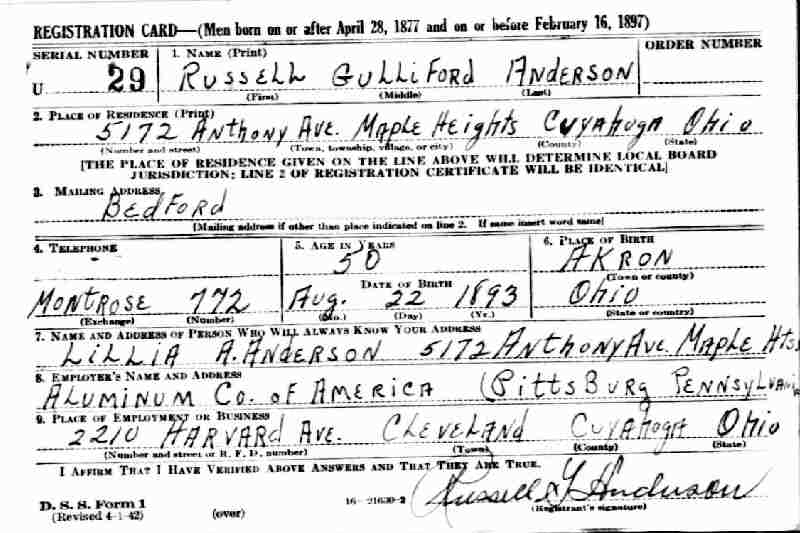 REGISTRATION CARD—(Men born on or after April 28, 1877 and on or before February 16, 1897)
SERIAL NUMBER 1. NAME (Print) ORDER NUMBER
U 29 RUSSELL GULLIFORD ANDERSON
(First) (Middle) (Last)
2. PLACE OF RESIDENCE (Print)
5172 Anthony Ave. Maple Heights Cuyahoga Ohio
(Number and street) (Town, township, village, or city) (County) (State)
[THE PLACE OF RESIDENCE GIVEN ON THE LINE ABOVE WILL DETERMINE LOCAL BOARD
JURISDICTION; LINE 2 OF REGISTRATION CERTIFICATE WILL BE IDENTICAL]
3. MAILING ADDRESS
BEDFORD
[Mailing address if other than place indicated on line 2. If same insert word same]
4. TELEPHONE 5. AGE IN YEARS 6. PLACE OF BIRTH
50 AKRON
DATE OF BIRTH (Town or county)
MONTROSE 772 Aug. 22 1893 Ohio
(Exchange) (Number) (Mo.) (Day) (Yr.) (State or country)
7. NAME AND ADDRESS OF PERSON WHO WILL ALWAYS KNOW YOUR ADDRESS
LILLIA A. ANDERSON 5172 Anthony Ave. Maple Hts
8. EMPLOYER'S NAME AND ADDRESS
ALUMINUM Co. of AMERICA (PITTSBURG PENNSYLVANIA
9. PLACE OF EMPLOYMENT OR BUSINESS
2210 HARVARD AVE. CLEVELAND CUYAHOGA Ohio
(Number and street or R. F. D. number) (Town) (County) (State)
I AFFIRM THAT I HAVE VERIFIED ABOVE ANSWERS AND THAT THEY ARE TRUE.
D. S. S. Form 1 16—21630-2 Russell G Anderson
(Revised 4-1-42) (over) (Registrant's signature)